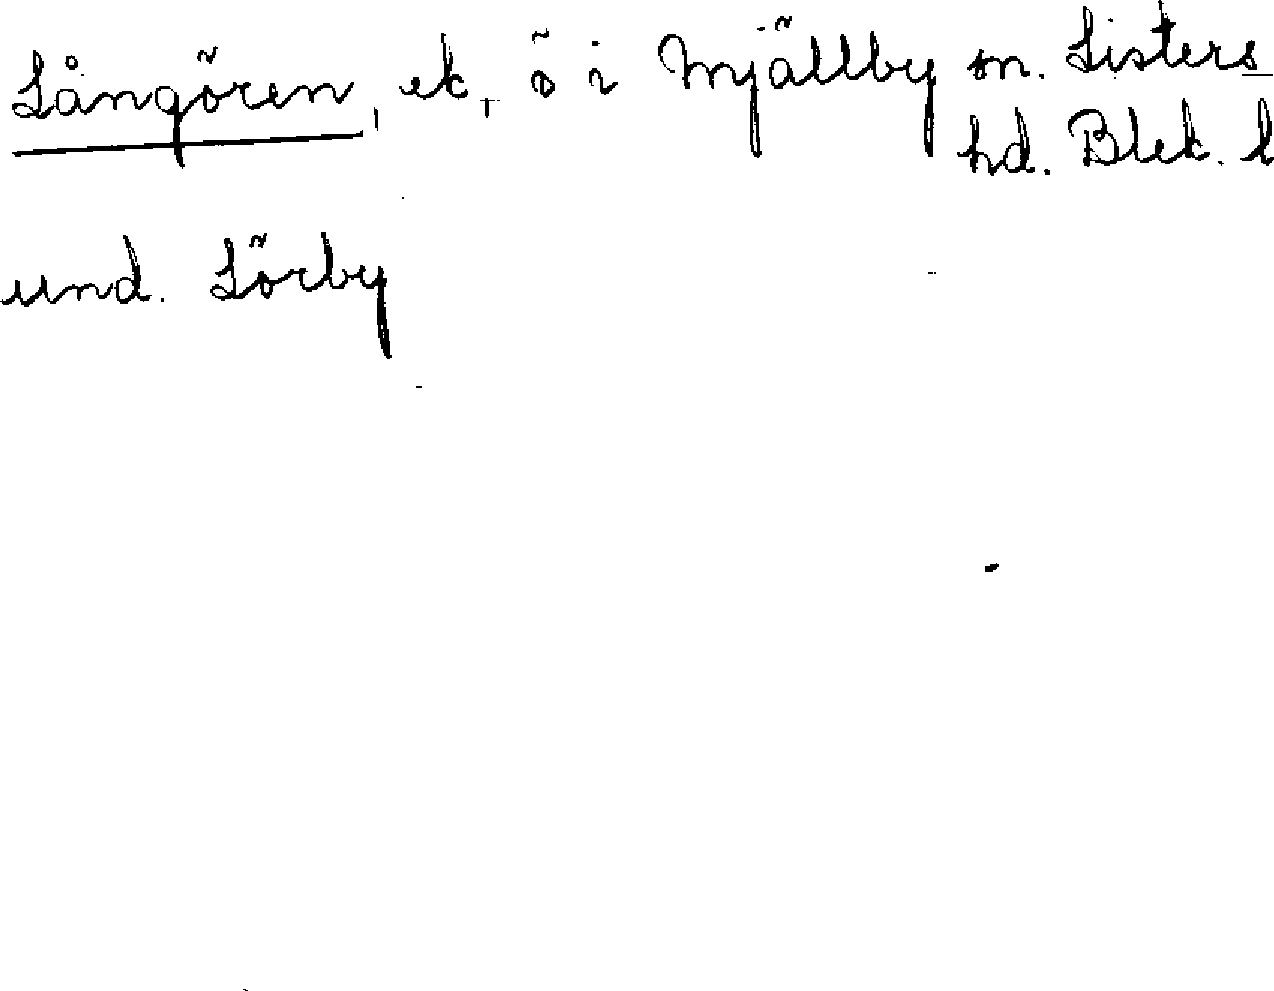 Långören, ek. ö i Mjällby sn. Listers
hd. Blek. l
und. Lörby